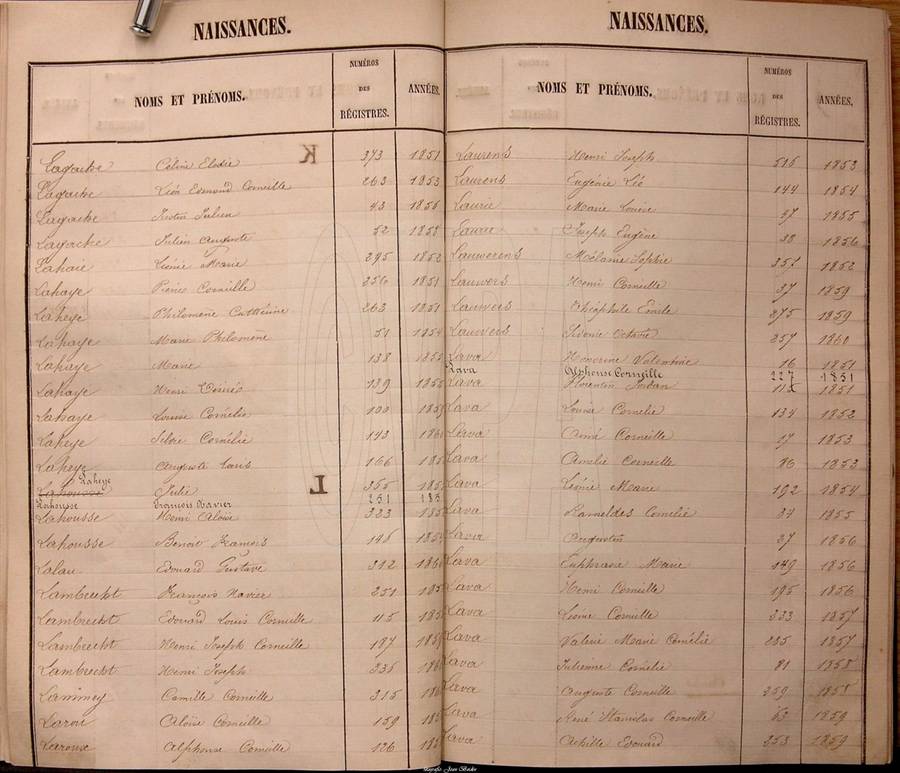 NAISSANCES.
NOMS ET PRÉNOMS. NUMÉROS DES RÉGISTRES. ANNÉES.
Lagache Céline Elodie 373 1851
Lagache Léon Edmond Corneille 263 1853
Lagache Justin Julien 43 1856
Lagache Julien Auguste 52 1858
Lahaie Léonie Marie 295 1852
Lahaye Pierre Corneille 256 1851
Laheye Philomène Cathérine 263 1851
Lahaye Marie Philomène 51 1854
Lahaye Marie 138 185
Lahaye Henri 139 1855
Lahaye Louise Cornélie 100 185
Laheye Cornélie 143 186
Laheye Auguste Louis 166 185
Laheye
Lahousse Julie 355 185
Lahousse François Xavier 251 185
Lahousse Henri Aloïse 323 185
Lahousse Benoit François 145 185
Lalau Edouard Gustave 312 186
Lambrecht François Xavier 251 185
Lambrecht Edouard Louis Corneille 115 185
Lambrecht Henri Joseph Corneille 187 185
Lambrecht Henri Joseph 235 186
Camille Corneille 315 186
Aloïse Corneille 159 185
Laroux Alphonse Corneille 126 185
NAISSANCES.
NOMS ET PRÉNOMS. NUMÉROS DES RÉGISTRES. ANNÉES.
Laurens Henri Joseph 515 1853
Laurens Eugénie Léo 144 1854
Laurie Marie Louise 37 1855
Laurie Joseph Eugène 38 1856
Lauwerens Mélanie Sophie 351 1852
Lauwers Henri Corneille 37 1859
Lauwers Théophile Emile 275 1859
Lauwers Sidonie Octavie 257 1860
Lava Honorine Valentine 16 1851
Lava Alphonse Corneille 227 1851
Lava Florentin Jordan 1851
Lava Louise Cornelie 134 1852
Lava Aimé Corneille 17 1853
Lava Amélie Corneille 86 1853
Lava Léonie Marie 192 1854
Lava Cornelie 34 1855
Lava Augustin 37 1856
Lava Euphrasie Marie 149 1856
Lava Henri Corneille 195 1856
Lava Léonie Corneille 333 1857
Lava Valerie Marie Cornélie 235 1857
Lava Julienne Cornelie 81 1858
Lava Auguste Corneille 259 1858
Lava René Stanislas Corneille 63 1859
Lava Achille Edouard 253 1859